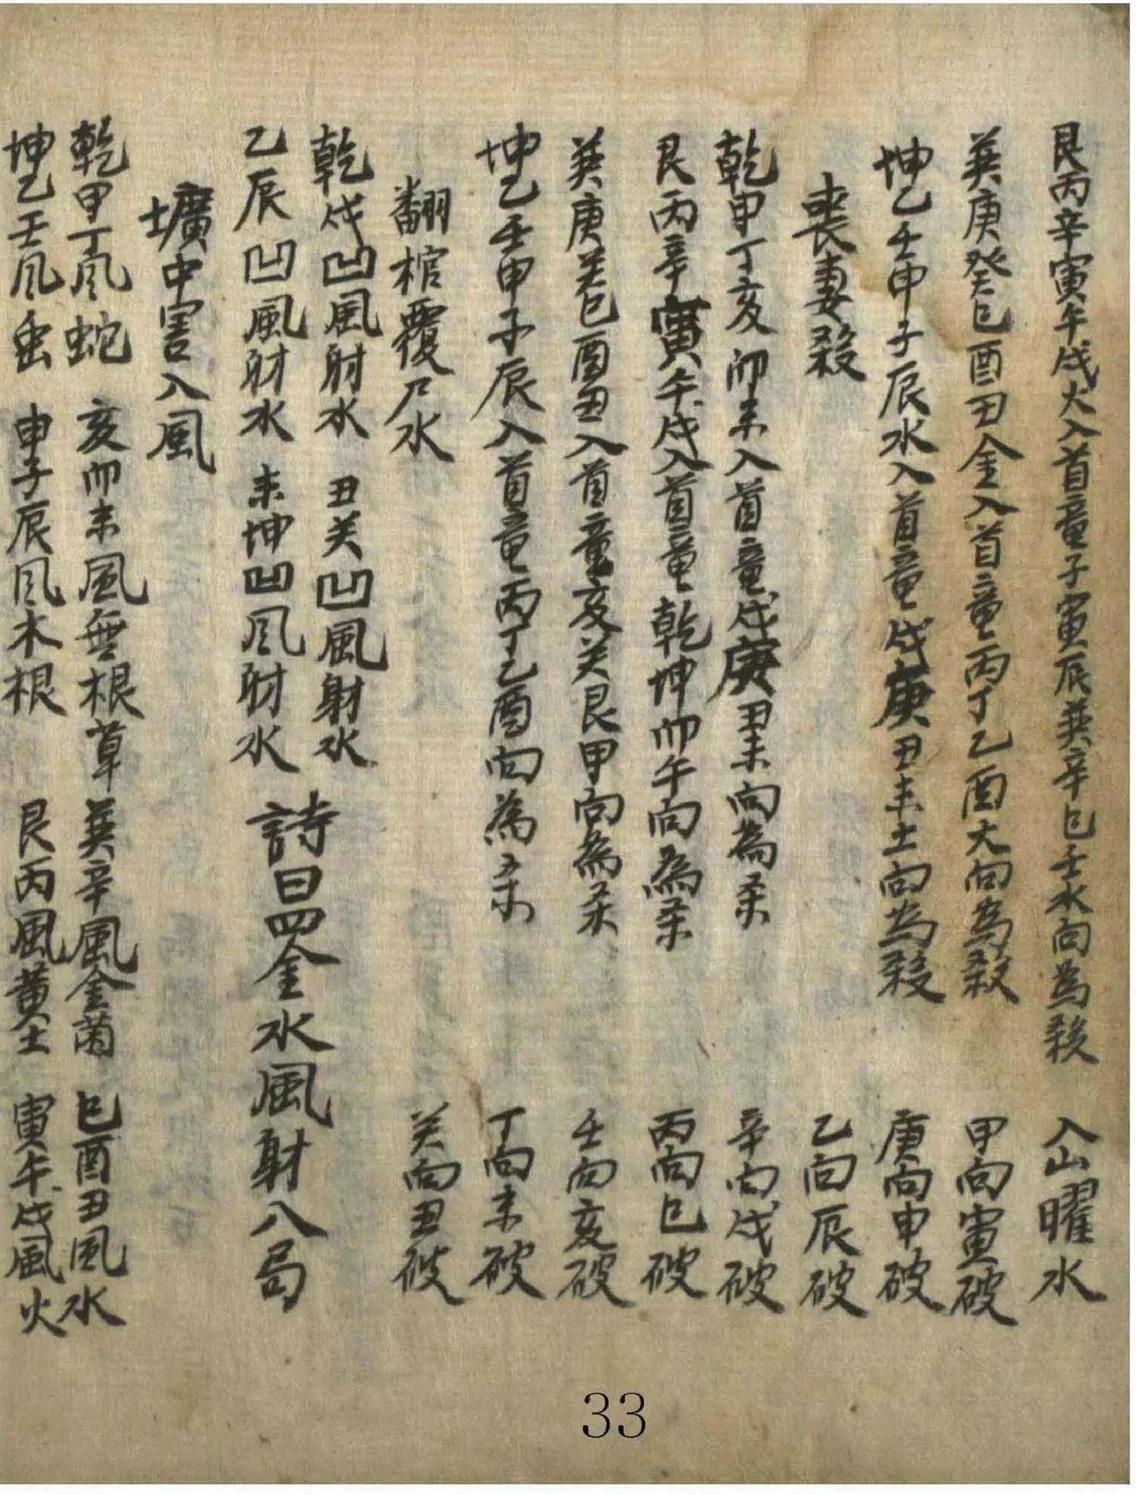 艮丙辛寅午戌火入首童子寅辰巽辛巳壬水向為殺 入山曜水
巽庚癸巳酉丑金入首童丙丁乙酉大向為殺 甲向寅破
坤乙壬申子辰水入首童戌庚丑未土向為殺 庚向申破
喪妻殺 乙向辰破
乾甲丁亥卯未入首童戌庚丑未向為杀 辛向戌破
艮丙辛寅午戌入首童乾坤卯午向為杀 丙向巳破
巽庚癸巳酉丑入首童亥癸艮甲向為杀 壬向亥破
坤乙壬申子辰入首童丙丁乙酉向為杀 丁向未破
翻棺覆尸水 癸向丑破
乾戌凹風射水 丑癸凹風射水
乙辰凹風射水 未坤凹风射水
詩曰四金水風射八局
壙中害入風
乾甲丁风蛇 亥卯未風無根草 巽辛風金菌 巳酉丑風水
坤乙壬风虫 申子辰风木根 艮丙風黄土 寅午戌風火
33